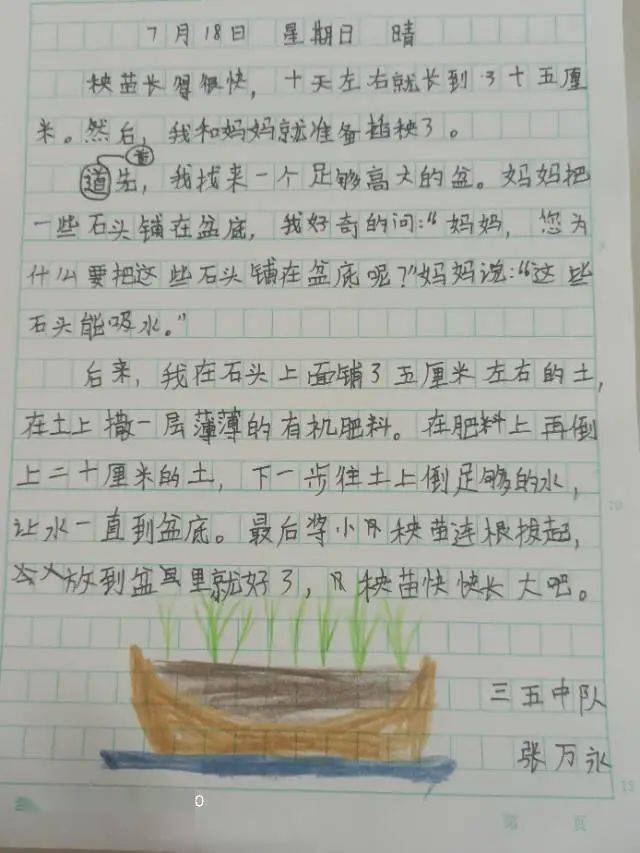 7月18日 星期日 晴
秧苗长得很快，十天左右就长到了十五厘
米。然后，我和妈妈就准备插秧了。
首
道先，我找来一个足够高大的盆。妈妈把
一些石头铺在盆底，我好奇的问：“妈妈，您为
什么要把这些石头铺在盆底呢？”妈妈说：“这些
石头能吸水。”
后来，我在石头上面铺了五厘米左右的土，
在土上撒一层薄薄的有机肥料。在肥料上再倒
上二十厘米的土，下一步往土上倒足够的水，
让水一直到盆底。最后将小秧苗连根拔起，
放到盆里就好了，秧苗快快长大吧。
三五中队
张万永
第 页